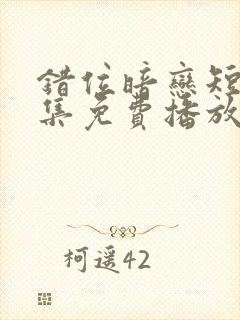 錯位暗戀短
集免費播放
柯遥42